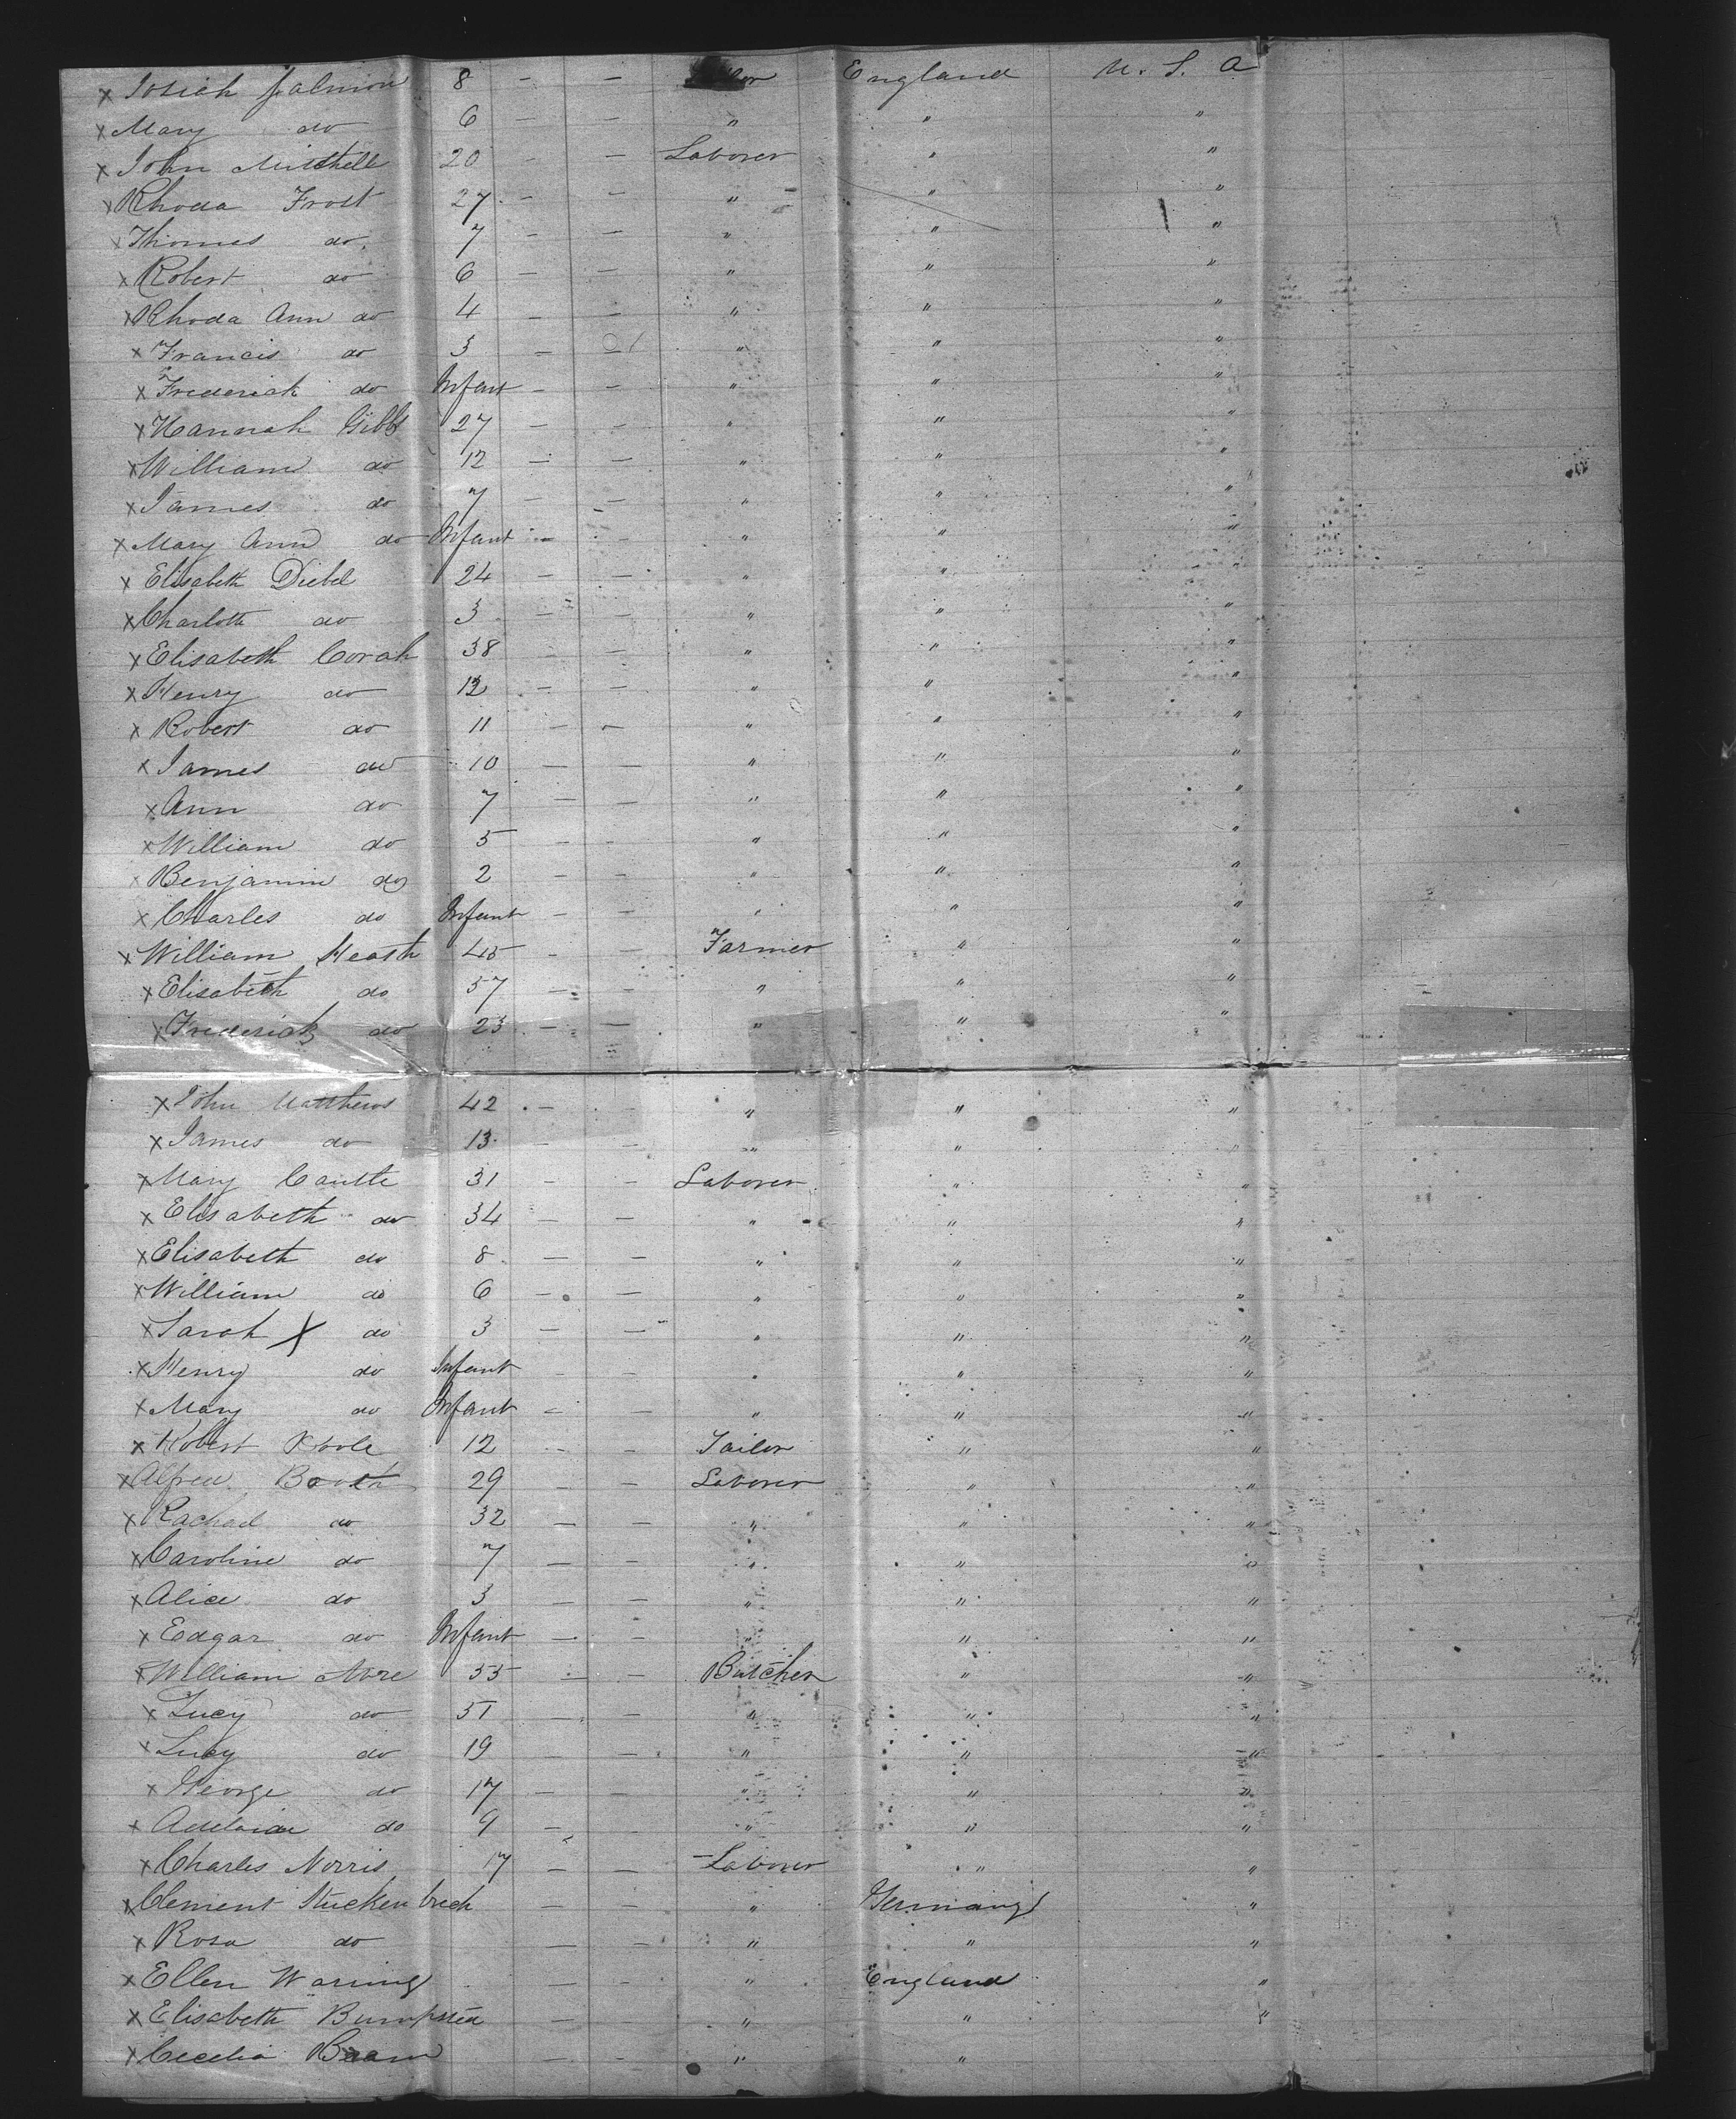 x Josiah Salmon 8 — — England U. S. A
x Mary do 6 — — " " "
x John Mitchell 20 - — Laborer " "
x Rhoda Frost 27 - — " " "
x Thomas do. 7 — — " " "
x Robert do 6 — — " " "
x Rhoda Ann do 4 — — " " "
x Francis do 3 — — " " "
x Frederick do Infant — - " " "
x Hannah Gibbs 27 — - " " "
x William do 12 — — " " "
x James do 7 — — " " "
x Mary Ann do Infant — - " " "
x Elisabeth Diebel 24 — — " " "
x Charlotte do 3 — — " " "
x Elisabeth Corah 38 — — " " "
x Henry do 12 — — " " "
x Robert do 11 — — " " "
x James do 10 — — " " "
x Ann do 7 — — " " "
x William do 5 — - " " "
x Benjamin do 2 — — " " "
x Charles do Infant — — " " "
x William Heath 45 - — Farmer " "
x Elisabeth do 57 — — " " "
x Frederick do 23 — — " " "
x John Matthews 42 — - " " "
x James do 13 — - " " "
x Mary 31 - — Laborer " "
x Elisabeth do 34 — — " " "
x Elisabeth do 8 — — " " "
x William do 6 — — " " "
x Sarah X do 3 — — " " "
x Henry do Infant - — " " "
x Mary do Infant — — " " "
x Robert 12 - — Tailor " "
x Alfred Booth 29 - — Laborer " "
x Rachael do 32 — — " " "
x Caroline do 7 — — " " "
x Alice do 3 — — " " "
x Edgar do Infant — — " " "
x William 55 — — Butcher " "
x Lucy do 51 — — " " "
x Lucy do 19 — — " " "
x George do 17 — — " " "
x Adelaide do 9 — - " " "
x Charles Norris 17 — — Laborer " "
x Clement Stuckenbrech — — " Germany "
x Rosa do — — " " "
x Ellen Waring — - " England "
x Elisabeth Bumpsted — " " "
x Cecelia — — " "